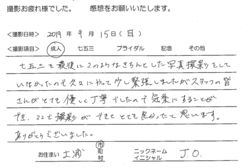 撮影お疲れ様でした。 感想をお願いいたします。
<撮影日時> 2019年 9月 15日(日)
<撮影種目> 成人 七五三 ブライダル 記念 その他
七五三を最後にこのようなきちんとした写真撮影をして
いなかったので久々にやって少し緊張しましたがスタッフの皆
さんがとても優しく丁寧でしたので笑顔になることが
でき、ここで撮影ができてとても良かったと思います。
ありがとうございました。
お住まい 土浦 市 町 村 ニックネーム イニシャル J.O.